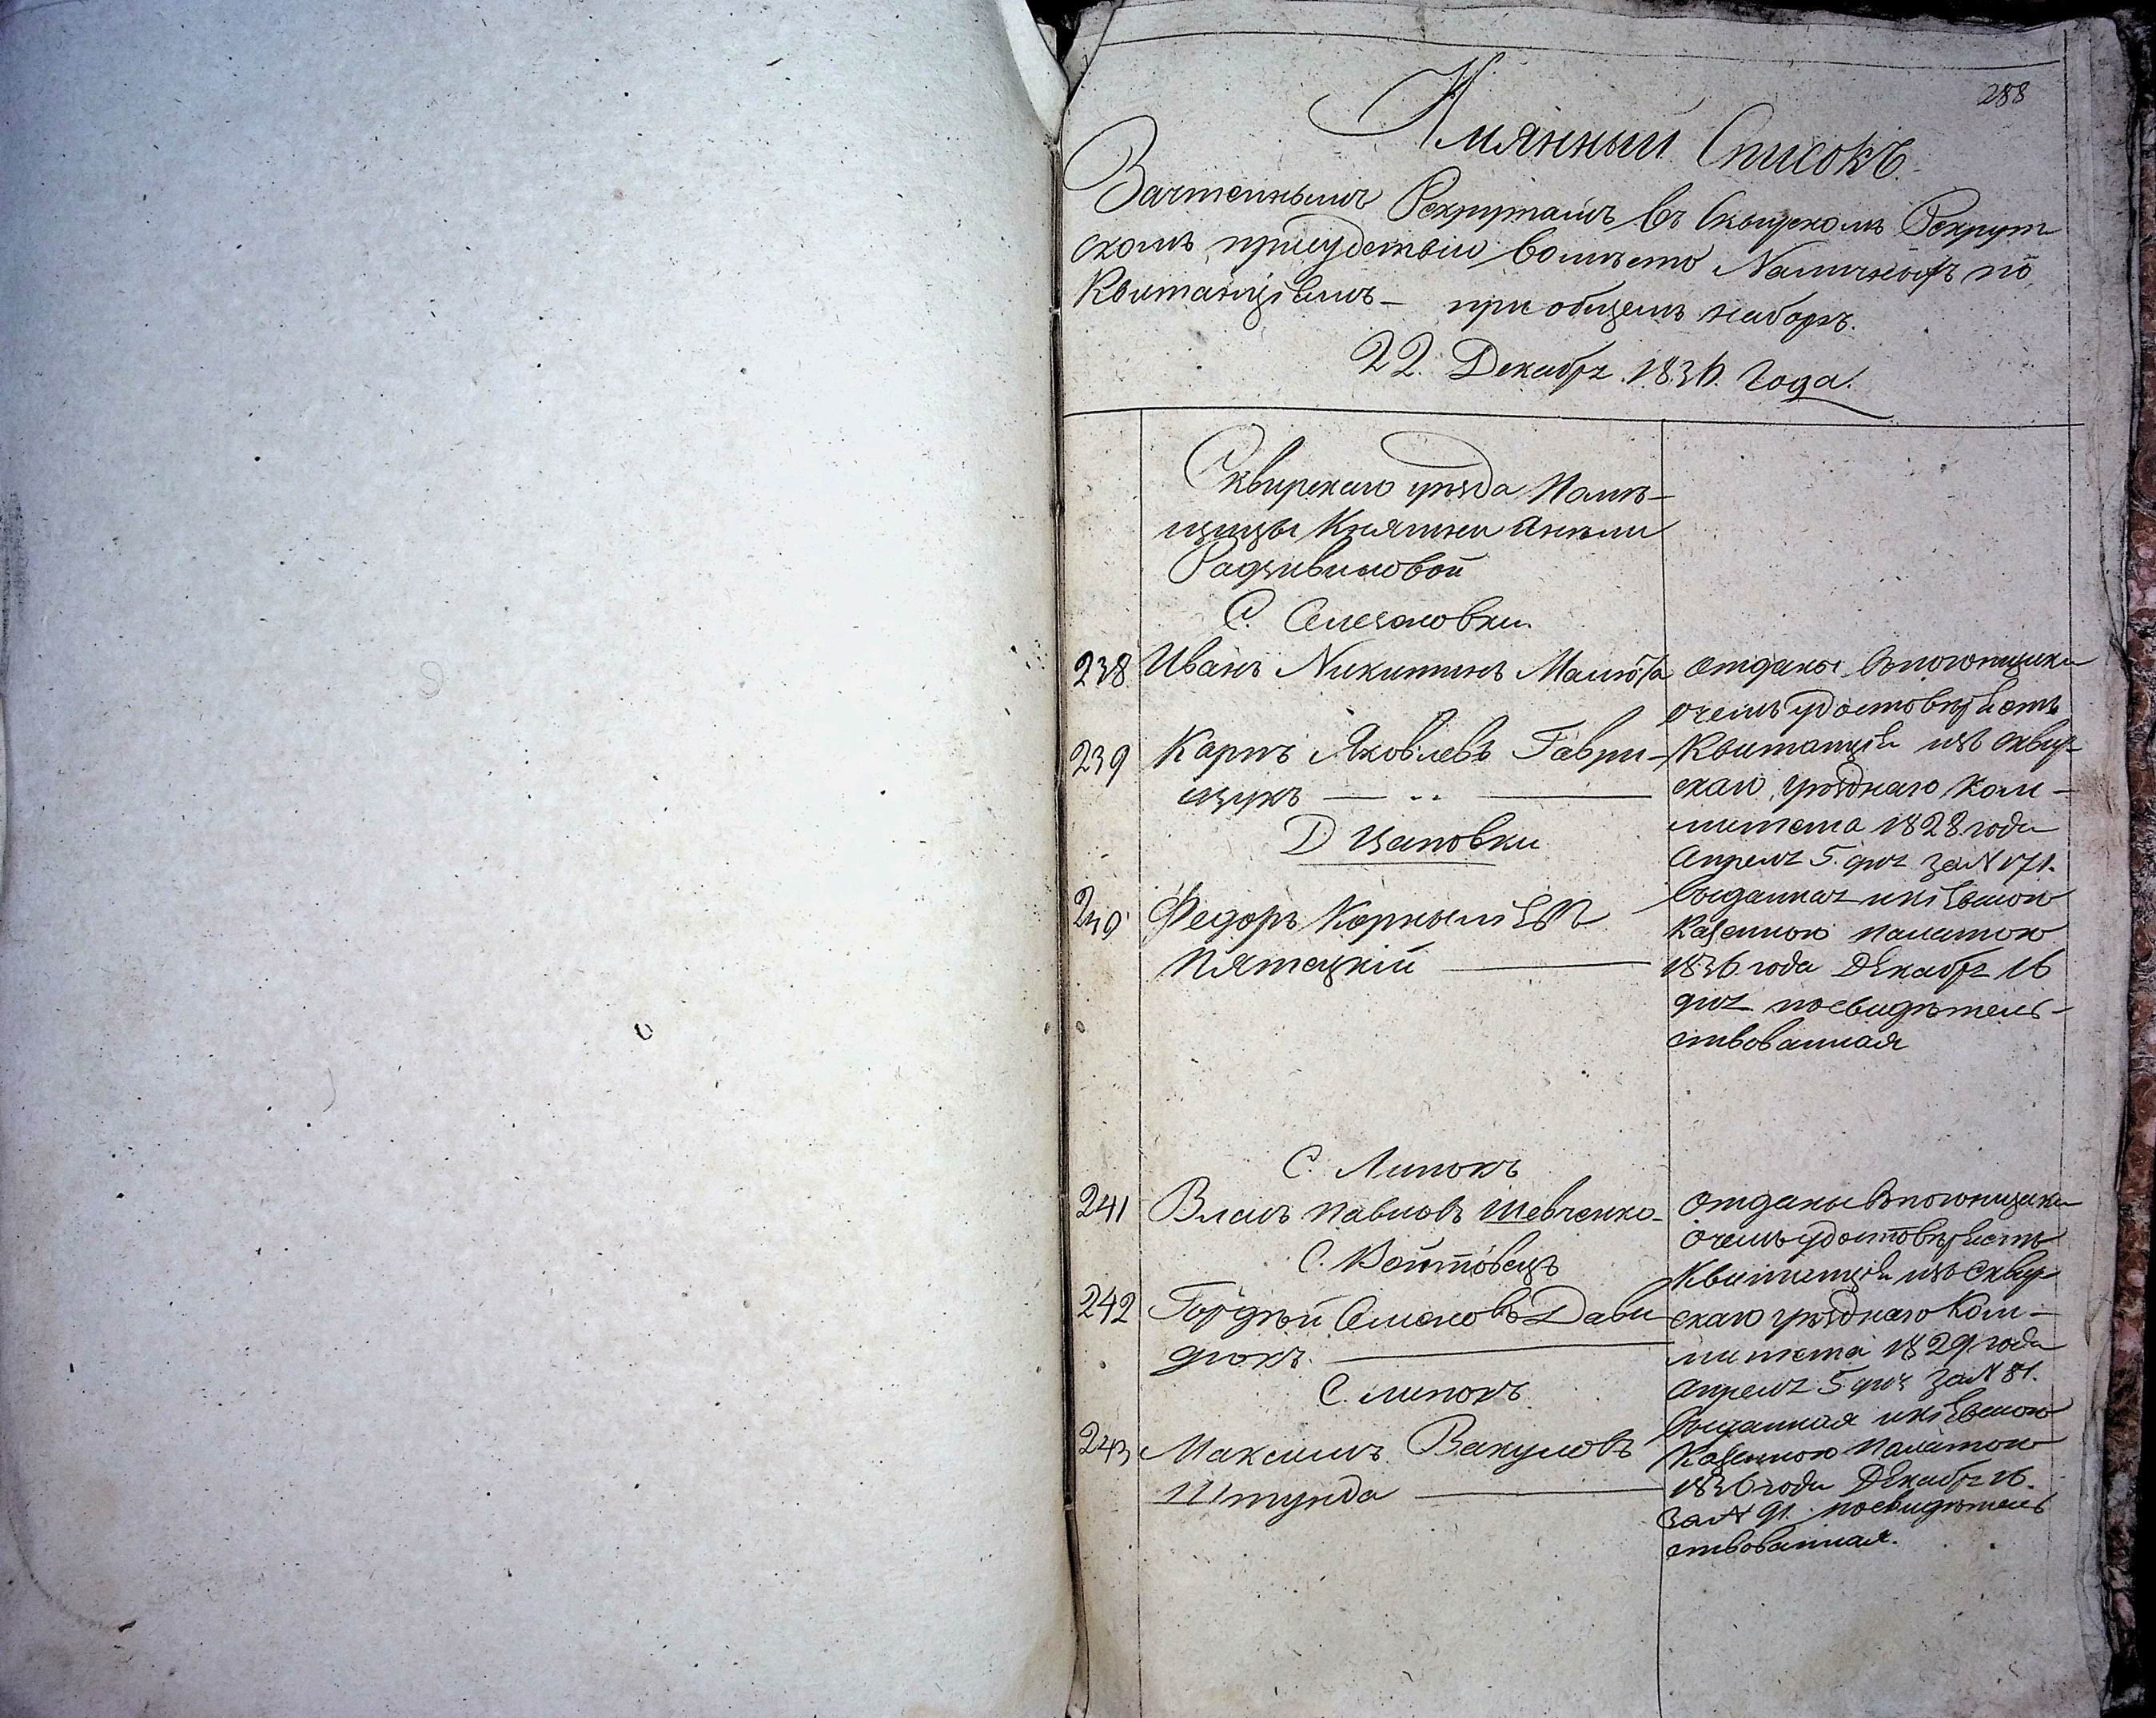 288
Имянный Списокъ
Зачтеннымъ Рекрутамъ въ Сквирскомъ Рекрут
скомъ присудствіи вомѣсто Наличныхъ по
Квитанціямъ — при общемъ наборѣ.
22. Декабря 1836. Года.
Сквирскаго уѣзда Помѣ-
щицы Княгини Анѣли
Радзивиловой
С.
238 Иванъ Никитинъ
239 Карпъ Яковлевъ Гаври-
щукъ
Д
240 Федоръ Корнылiевъ
Пятецкій
отданы впогонщики
о чемъ удостовѣряетъ
Квитанція изъ сквир-
скаго уѣзднаго Ком-
митета 1828 года
Апреля 5. дня за № 171.
выданная и кіевскою
Казенною палатою
1836 года Декабря 16
дня посвидѣтель-
ствованная
С. Липокъ
241 Власъ Павловъ Шевченко
С. Войтовецъ
242 Гордѣй Семеновъ Дави
дюкъ.
С. липокъ
243 Максимъ Вакуловъ
Штунда
отданы впогонщики
о чемъ удостовѣряетъ
Квитанція изъ Сквир-
скаго уѣзднаго Ком-
митета 1829 года
Апреля 5 дня за № 81.
выданная и кіевскою
Казенною палатою
1836 года Декабря 16.
за № 91. посвидѣтель
ствованная.